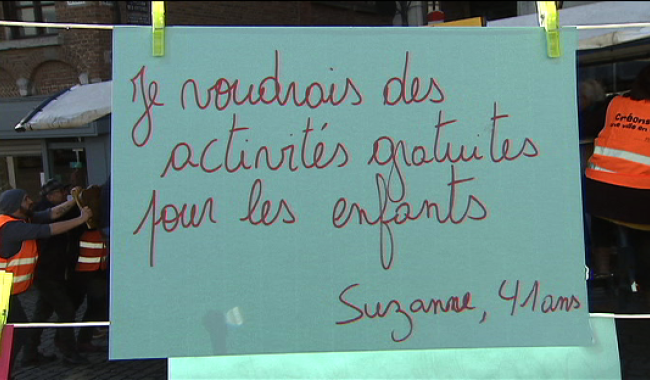 Je voudrais des
activités gratuites
pour les enfants
Suzanne, 41 ans
Créons